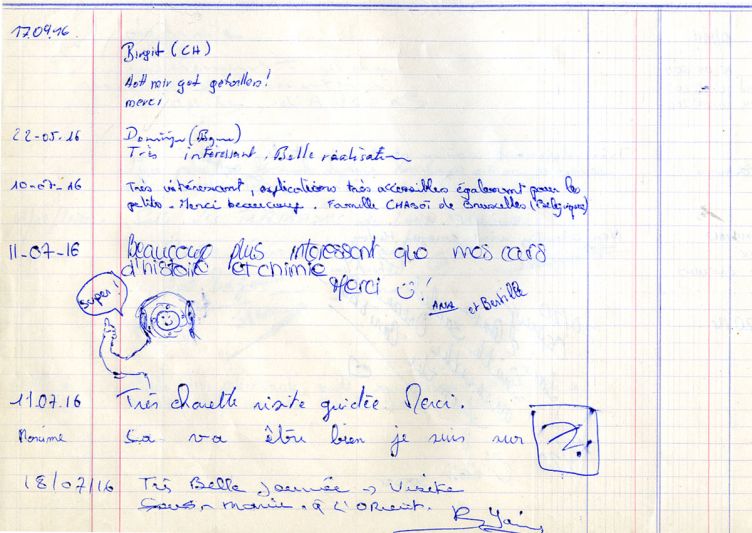 17.04.16
Birgit (CH)
Hatt mir gut gefallen!
merci
22-05-16
Très intéressant. Belle réalisation
10-07-16
Très intéressant, explications très accessibles également pour les
petits. Merci beaucoup. Famille de Bruxelles (Belgique)
11-07-16
Beaucoup plus interessant que mes cours
d'histoire et chimie
Merci !
et Bertille
Super!
11.07.16
Très chouette visite guidée Merci.
Maxime
Sa va être bien je suis sur
?
18/07/16
Très Belle Journée → Visite
sous-marin. à L'ORient.